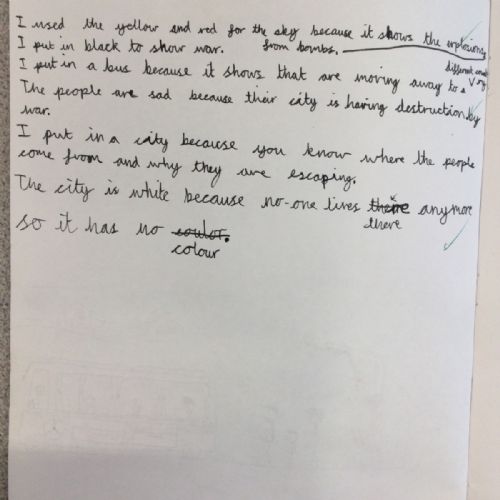 I used the yellow and red for the sky because it shows the explosions
I put in black to show war. from bombs.
I put in a bus because it shows that are moving away to a different
The people are sad because their city is having destruction by
war.
I put in a city because you know where the people
come from and why they are escaping.
The city is white because no-one lives there anymore
so it has no
colour